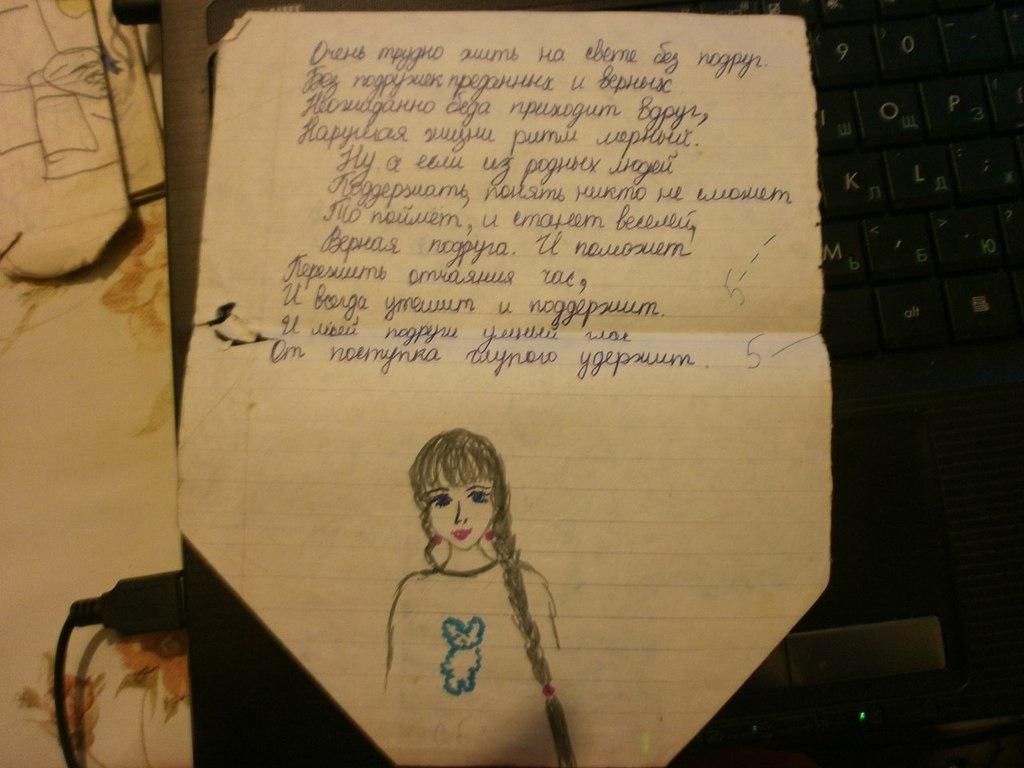 Очень трудно жить на свете без подруг.
Без подружек преданных и верных.
Неожиданно беда приходит вдруг,
Нарушая жизни ритм мерный.
Ну а если из родных людей
Поддержать, понять никто не сможет
То поймёт, и станет веселей,
Верная подруга. И поможет
Пережить отчаяния час,
И всегда утешит и поддержит.
И моей подруги умный глас
От поступка глупого удержит.
5-
5-
9 0
I Ш O Щ P З
K Л L Д ; Ж
M Ь < , Б > . Ю
alt